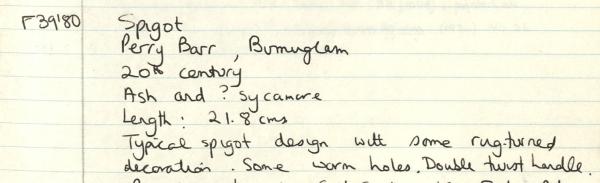 F39'80 Spigot
Perry Barr, Birmingham
20th century
Ash and ? Sycamore
Length: 21.8 cms
Typical spigot design with some rug-turned
decoration. Some worm holes. Double twist handle.